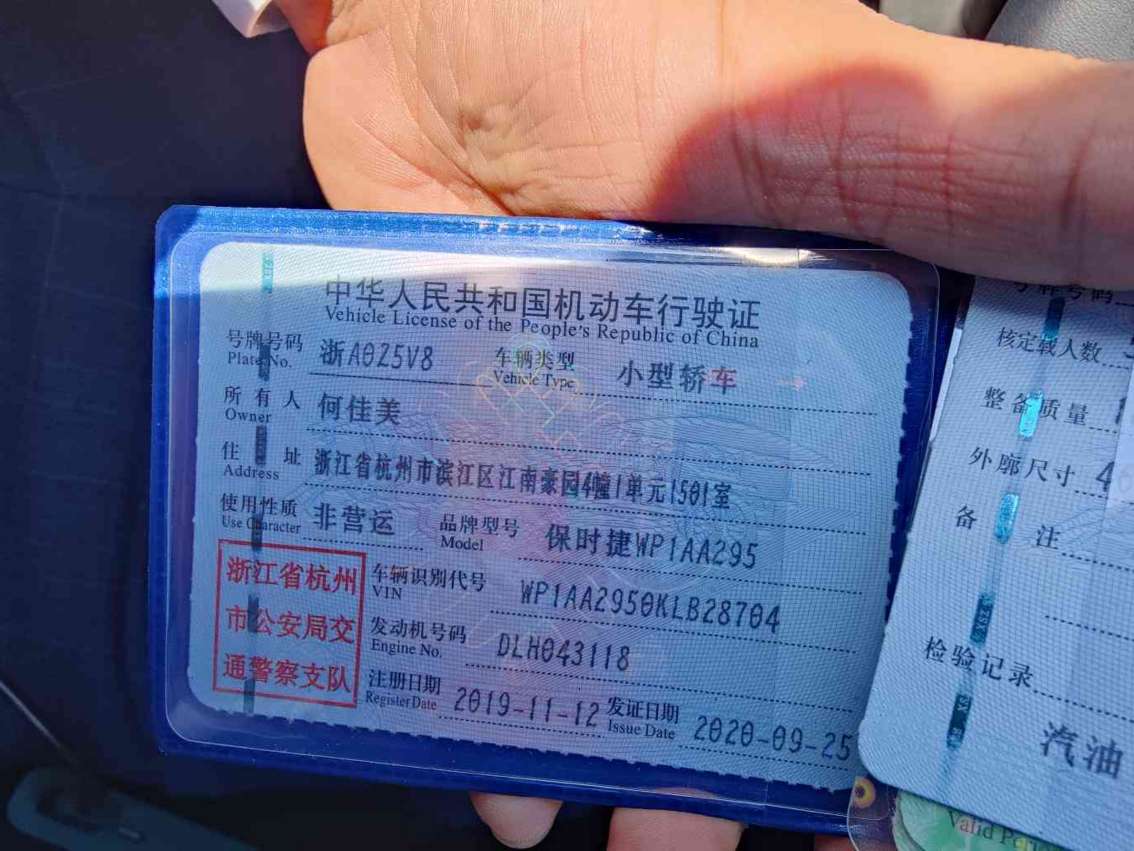 中华人民共和国机动车行驶证
Vehicle License of the People's Republic of China
号牌号码 浙A0Z5V8 车辆类型 小型轿车
Plate No. Vehicle Type
所有人 何佳美
Owner
住址 浙江省杭州市滨江区江南豪园4幢1单元1501室
Address
使用性质 非营运 品牌型号 保时捷WP1AA295
Use Character Model
浙江省杭州
市公安局交
通警察支队
车辆识别代号 WP1AA2950KLB28704
VIN
发动机号码 DLH043118
Engine No.
注册日期 2019-11-12 发证日期 2020-09-25
Register Date Issue Date
号牌号码
核定载人数
整备质量
外廓尺寸
备注
检验记录
汽油
Valid